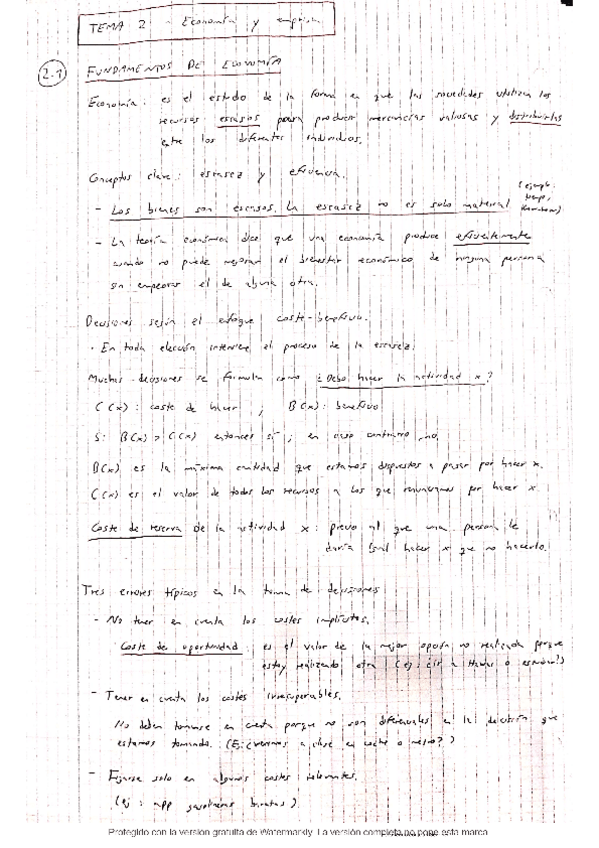 TEMA 2 - Economía y empresa
2.1 FUNDAMENTOS DE ECONOMÍA
Economía: es el estudio de la forma en que las sociedades utilizan los
recursos escasos para producir mercancías valiosas y distribuirlas
entre los diferentes individuos.
Conceptos clave: escasez y eficiencia.
- Los bienes son escasos. La escasez no es solo material (ejemplo:
- La teoría económica dice que una economía produce eficientemente
cuando no puede mejorar el bienestar económico de ninguna persona
sin empeorar el de alguna otra.
Decisiones según el enfoque coste-beneficio.
· En toda elección interviene el proceso de la escasez.
Muchas decisiones se formulan como ¿Debo hacer la actividad x?
C(x): coste de hacer ; B(x): beneficio
Si B(x) > C(x) entonces sí ; en caso contrario, no.
B(x) es la máxima cantidad que estamos dispuestos a pagar por hacer x.
C(x) es el valor de todos los recursos a los que renunciamos por hacer x.
Coste de reserva de la actividad x: precio al que una persona le
daría igual hacer x que no hacerlo.
Tres errores típicos en la toma de decisiones
- No tener en cuenta los costes implícitos.
Coste de oportunidad: es el valor de la mejor opción no realizada porque
estoy realizando otra (ej: ¿ir a o estudiar?)
- Tener en cuenta los costes irrecuperables.
No deben tomarse en cuenta porque no son diferenciales en la decisión que
estamos tomando. (Ej: ¿venimos a clase en coche o metro?)
- Fijarse solo en algunos costes relevantes.
(ej: app gasolineras baratas)
Protegido con la versión gratuita de Watermarkly. La versión completa no pone esta marca.